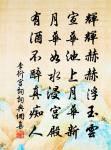 輝輝赫赫浮玉雲
宣華池上月華新
月華如水浸宮殿
有酒不醉真痴人
衍宮詞詞典網書